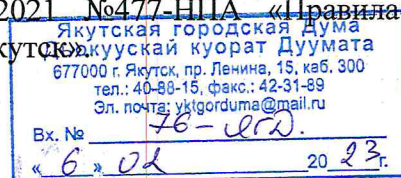 2021 №477-НПА «Правила
кутск».
Якутская городская Дума
Дьокуускай куорат Дуумата
677000 г. Якутск, пр. Ленина, 15, каб. 300
тел.: 40-88-15, факс.: 42-31-89
Эл. почта: yktgorduma@mail.ru
Вх. № 76-ЯГД.
« 6 » 02 2023г.